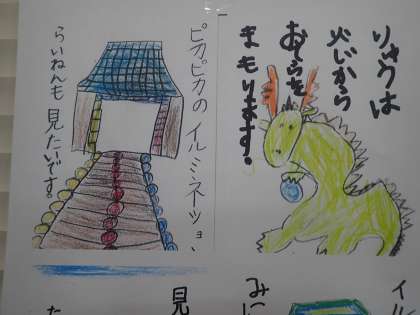 リュウは
火じから
おてらを
まもります。
ピカピカの イルミネーション
らいねんも 見たいです。
イル
見